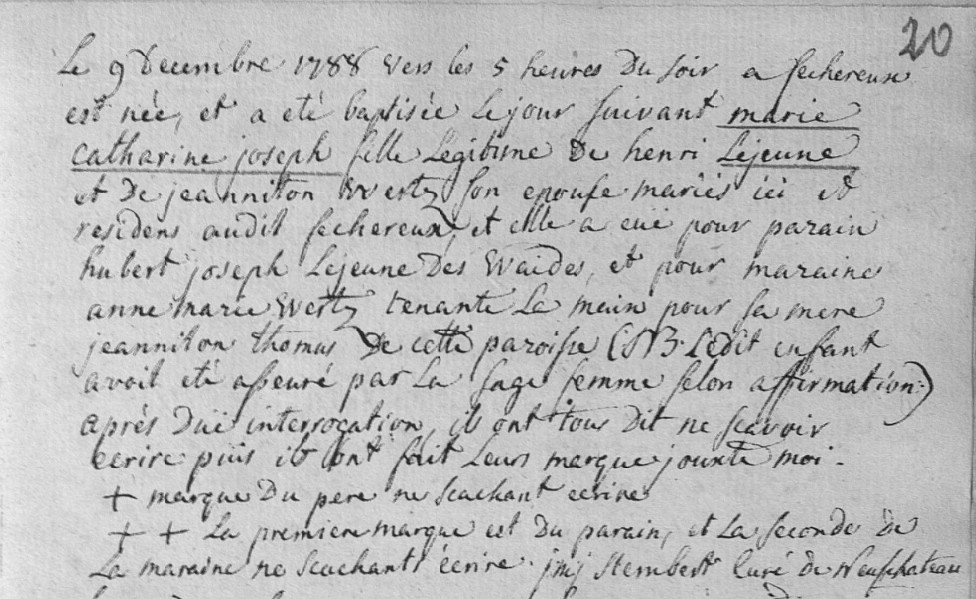 20
Le 9 Decembre 1788 vers les 5 heures Du soir a sechereux
est née, et a eté baptisée Le jour suivant marie
catharine joseph fille Legitime De henri Lejeune
et De jeanniton Wertz son epouse mariés ici et
residens audit sechereux, et elle a eüe pour parain
hubert joseph Lejeune Des Waides, et pour maraine
anne marie Wertz tenante La main pour sa mere
jeanniton thomas De cette paroisse (NB. Ledit enfant
avoit eté asseuré par La sage femme selon affirmation)
aprés Düe interrogation, ils ont tous Dit ne scavoir
ecrire puis ils ont fait Leurs marque jouxte moi.
+ marque Du pere ne scachant ecrire
+ + La premiere marque est Du parain, et La seconde de
La maraine ne scachants écrire. Stembert Curé De Neufchateau